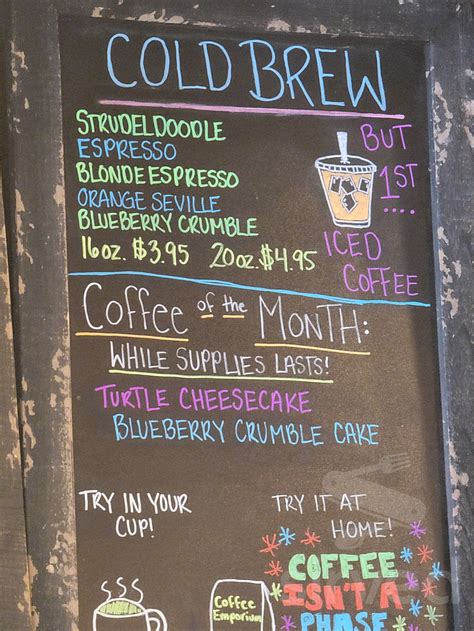 COLD BREW
STRUDELDOODLE
ESPRESSO
BLONDE ESPRESSO
ORANGE SEVILLE
BLUEBERRY CRUMBLE
16oz. $3.95 20oz. $4.95
BUT
1ST
....
ICED
COFFEE
Coffee of the MONTH:
WHILE SUPPLIES LASTS!
TURTLE CHEESECAKE
BLUEBERRY CRUMBLE CAKE
TRY IN YOUR
CUP!
TRY IT AT
HOME!
Coffee
Emporium
COFFEE
ISN'T A
PHASE